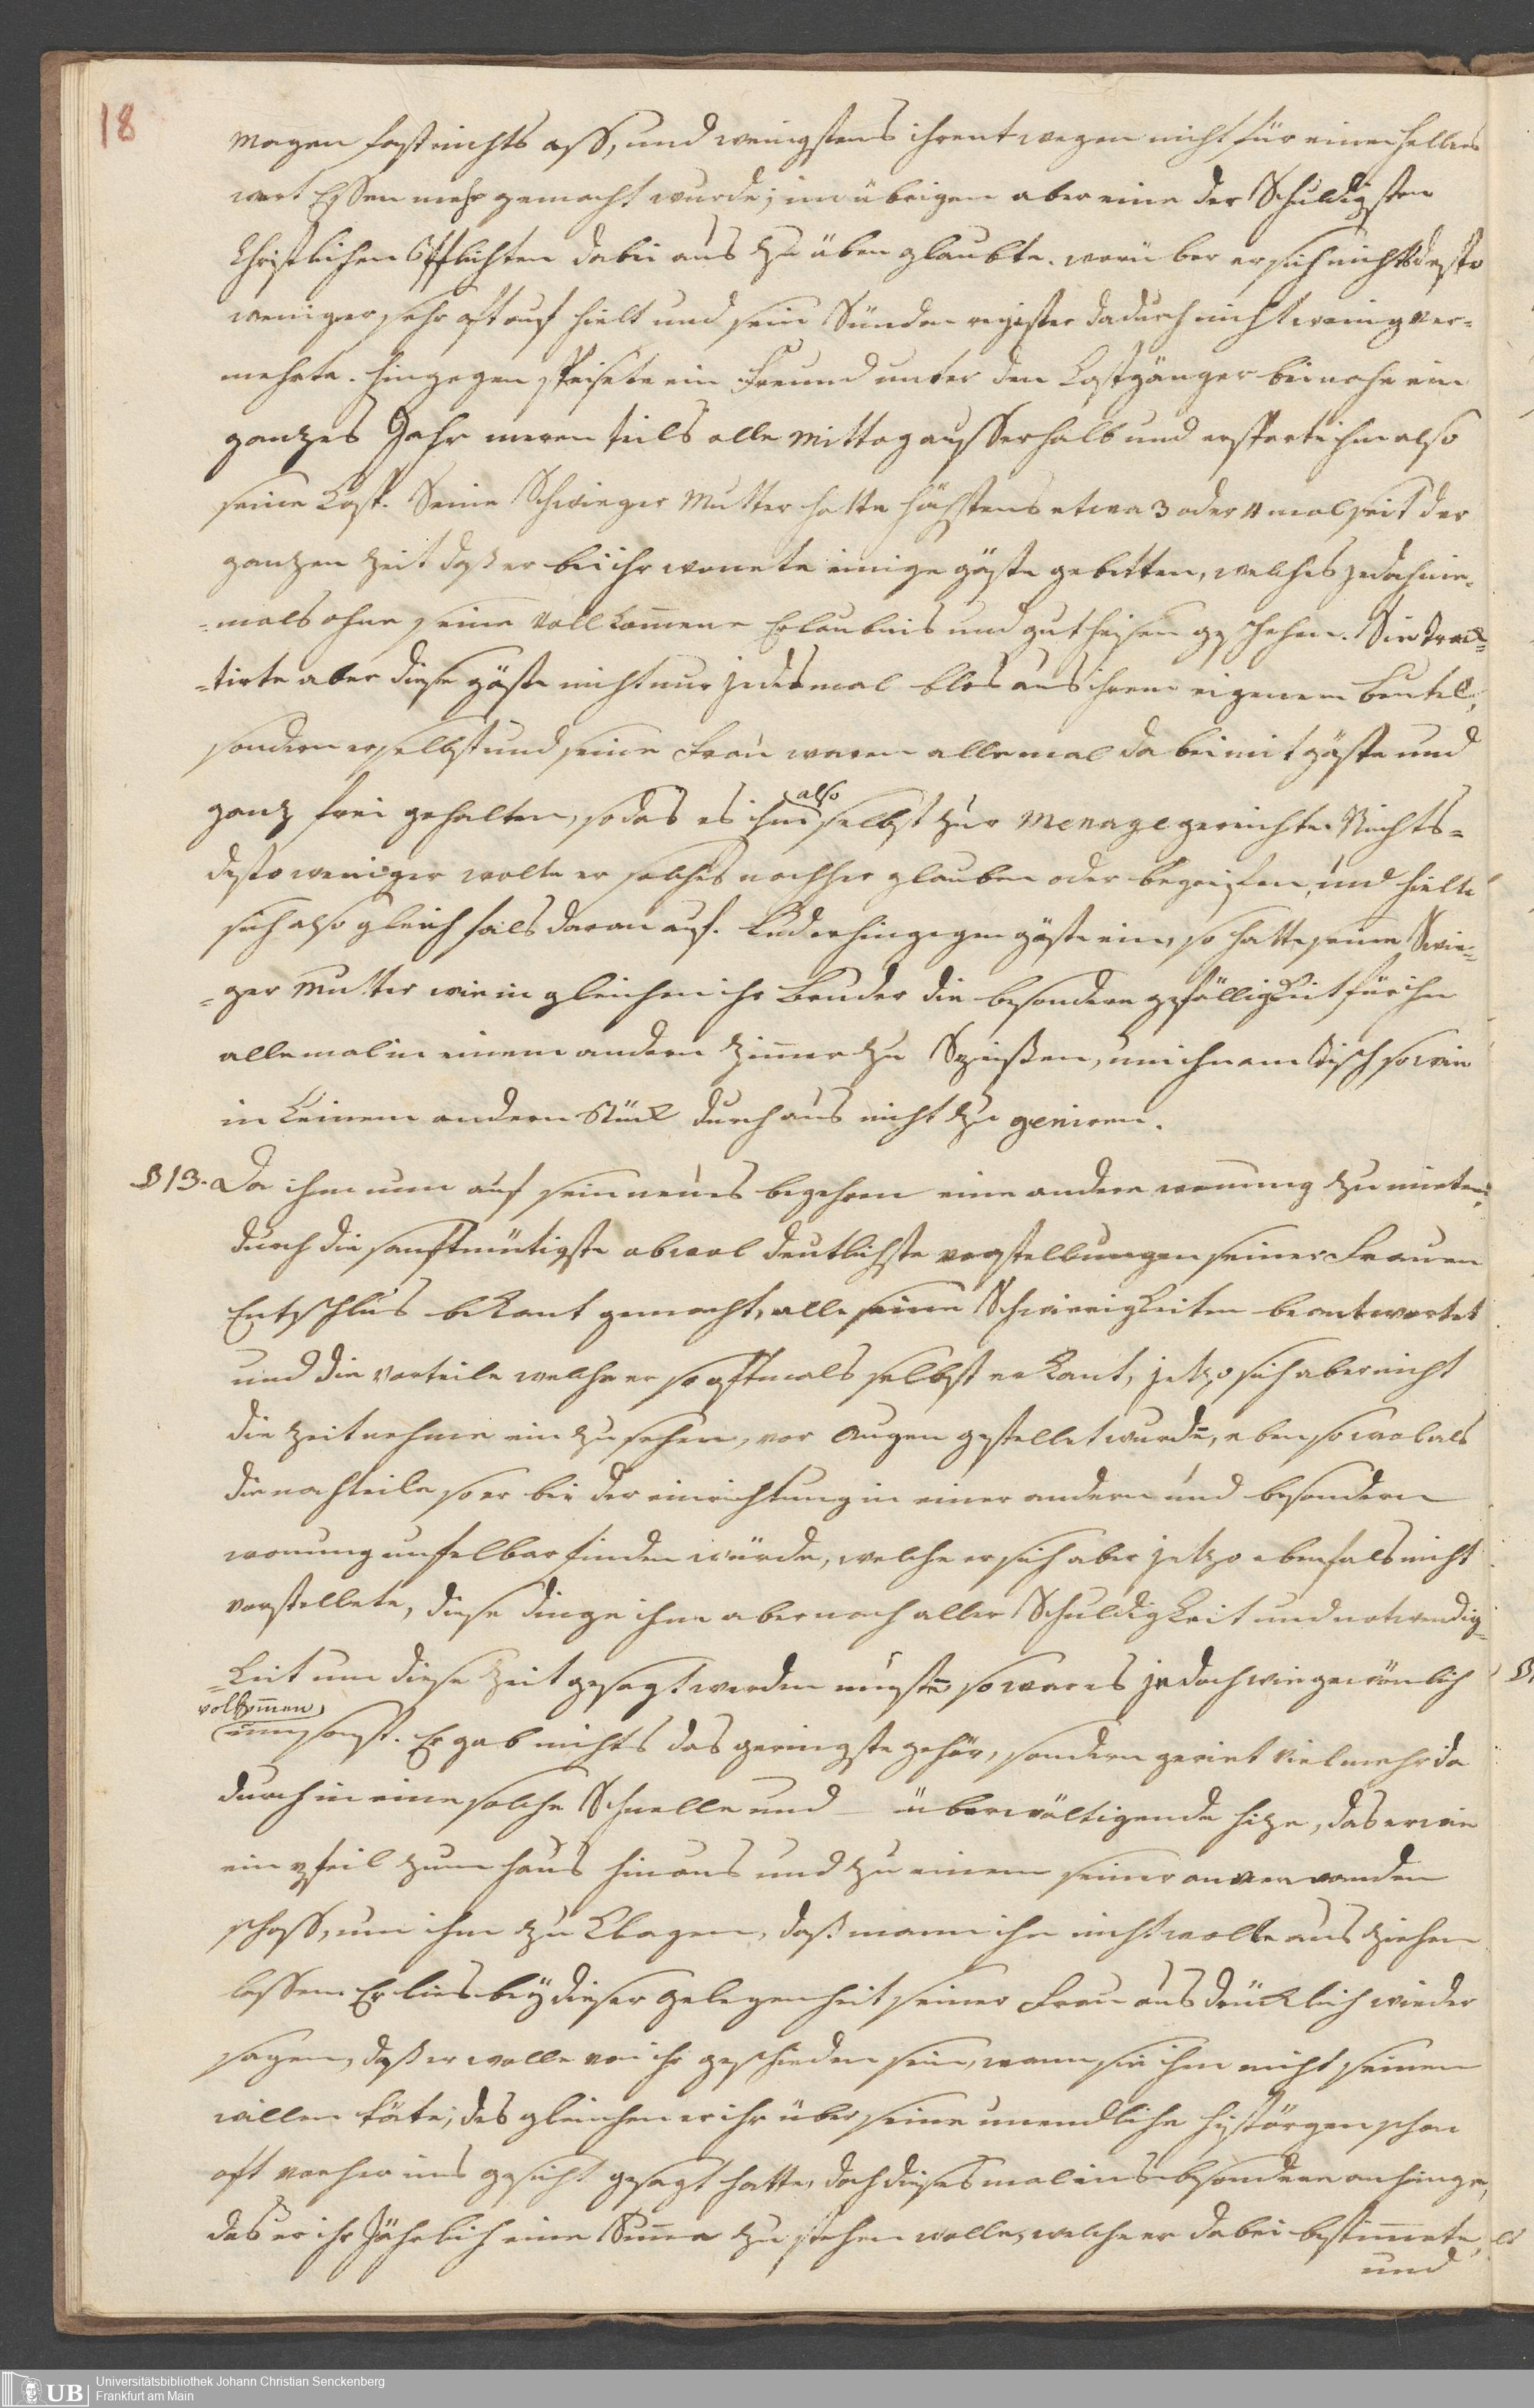 18
Magen fast nichts ass, und wenigstens ihrentwegen nicht für einen Hellers
wert Essen mehr gemacht wurde; im übrigen aber eine der Schuldigsten
Christlichen Pflichten dabei aus zu üben glaubte. worüber er sich nichts desto
weniger sehr oft auf hielt und sein Sünden register dadurch nicht wenig ver-
mehrte. hingegen speisete ein Freund unter den Kostgänger beinahe ein
ganzes Jahr meren teils alle Mittag ausserhalb und ersparte ihm also
seine Kost. Seine Schwieger Mutter hatte höchstens etwa 3 oder 4 mal seit der
ganzen Zeit daß er bei ihr wonete einige gäste gebetten, welches jedoch nie-
=mals ohne seine vollkom̄ene Erlaubnis und gutheisen geschehen. Sie trac-
=tirte aber diese gäste nicht nur jedesmal blos aus ihrem eigenem Beutel,
sondern er selbst und seine Frau waren allemal dabei mit gäste und
ganz frei gehalten, so das es ihm also selbst zur Menage gereichte. Nichts-
destoweniger wolte er solches nachher glauben oder begreifen, und hielte
sich also gleichfals daran auf. Lud er hingegen gäste ein, so hatte seine Swie-
=ger Mutter wie in gleichen ihr Bruder die besondere gefälligkeit für ihn
allemal in einem andern Zim̄er zu Speißen, um ihn am Tisch so wie
in keinem andern Stück durchaus nicht zu geniren.
§ 13. Da ihm nun auf sein neues begehren eine andere wonung zu mieten,
durch die sanftmütigste obwol deutlichste vorstellungen seiner Frauen
Entschlus bekant gemacht, alle seine Schwierigkeiten beantwortet
und die vorteile welche er so oftmals selbst erkant, jetzo sich aber nicht
die Zeit nehme ein zu sehen, vor Augen gestellet wurde, eben so wol als
die nachteile so er bei der einrichtung in einer andern und besondern
wonung unfelbar finden würde, welche er sich aber jetzo ebenfals nicht
vorstellete, diese dinge ihm aber nach aller Schuldigkeit und notwendig-
=keit um diese Zeit gesagt werden muste, so war es jedoch wie gewönlich
volkom̄en
umsonst. Er gab nichts das geringste gehör, sondern geriet vielmehr da
durch in eine solche Schnelle und überwältigende hize, das er wie
ein pfeil zum haus hinaus und zu einem seiner anverwanden
schoss, um ihm zu klagen, daß mann ihn nicht wolle aus ziehen
lassen. Er lies bey dieser gelegenheit seiner Frau ausdrücklich wieder
sagen, daß er wolle von ihr geschieden sein, wann sie ihm nicht seinen
willen täte; des gleichen er ihr über seine unendliche histörgen schon
oft vorher ins gesicht gesagt hatte, doch dieses mal ins besondere anhinge,
das er ihr Jährlich eine Sum̄e zu stehen wolle, welche er dabei bestim̄ete,
und
UB Universitätsbibliothek Johann Christian Senckenberg
Frankfurt am Main